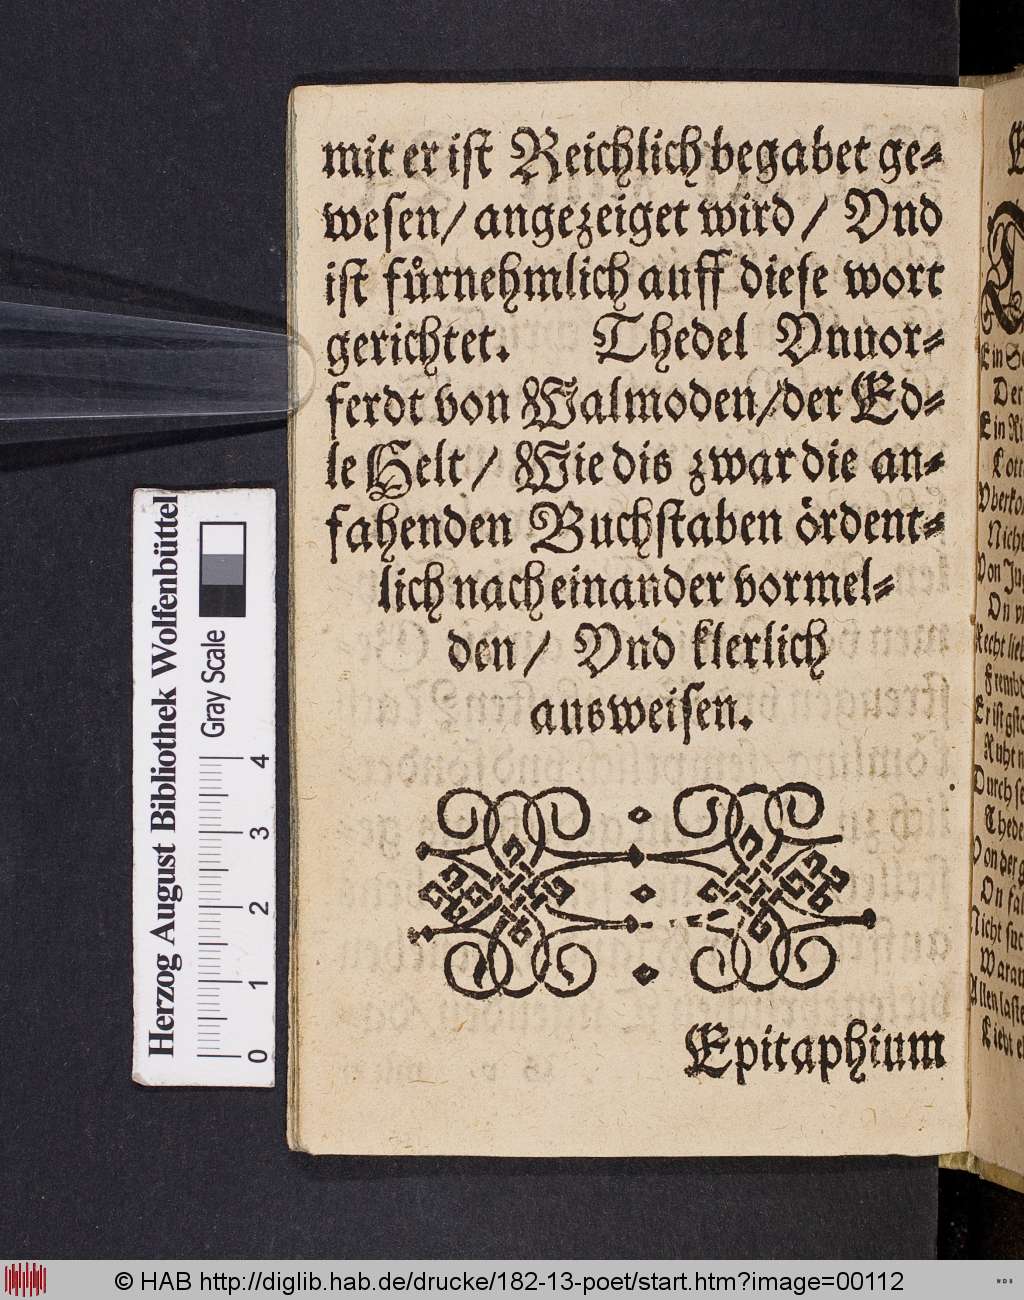 mit er ist Reichlich begabet ge-
wesen / angezeiget wird / Vnd
ist fürnehmlich auff diese wort
gerichtet. Thedel Vnuor-
ferdt von Walmoden / der Ed-
le Helt / Wie dis zwar die an-
fahenden Buchstaben ördent-
lich nach einander vormel-
den / Vnd klerlich
ausweisen.
Epitaphium
Ein
Der
Ein
Nicht
Von
On
Recht
Er ist
Ruht
Durch
Von der
On
Nicht
Herzog August Bibliothek Wolfenbüttel
Gray Scale
0 1 2 3 4
© HAB http://diglib.hab.de/drucke/182-13-poet/start.htm?image=00112